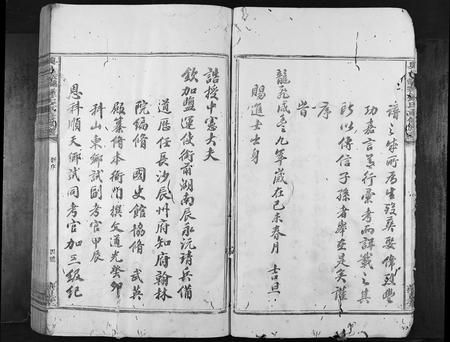 譜之作所為生歿葬娶偉烈豐
功嘉言善行彙考而詳載之其
所以傳信子孫者率在是矣謹
序
旹
龍飛咸豐九年歲在己未春月 吉旦
賜進士出身
誥授中憲大夫
欽加鹽運使銜前湖南辰永沅靖兵備
道歷任長沙辰州府知府翰林
院編修 國史館協修 武英
殿纂修本衙門撰文道光癸卯
科山東鄉試副考官甲辰
恩科順天鄉試同考官加三級紀